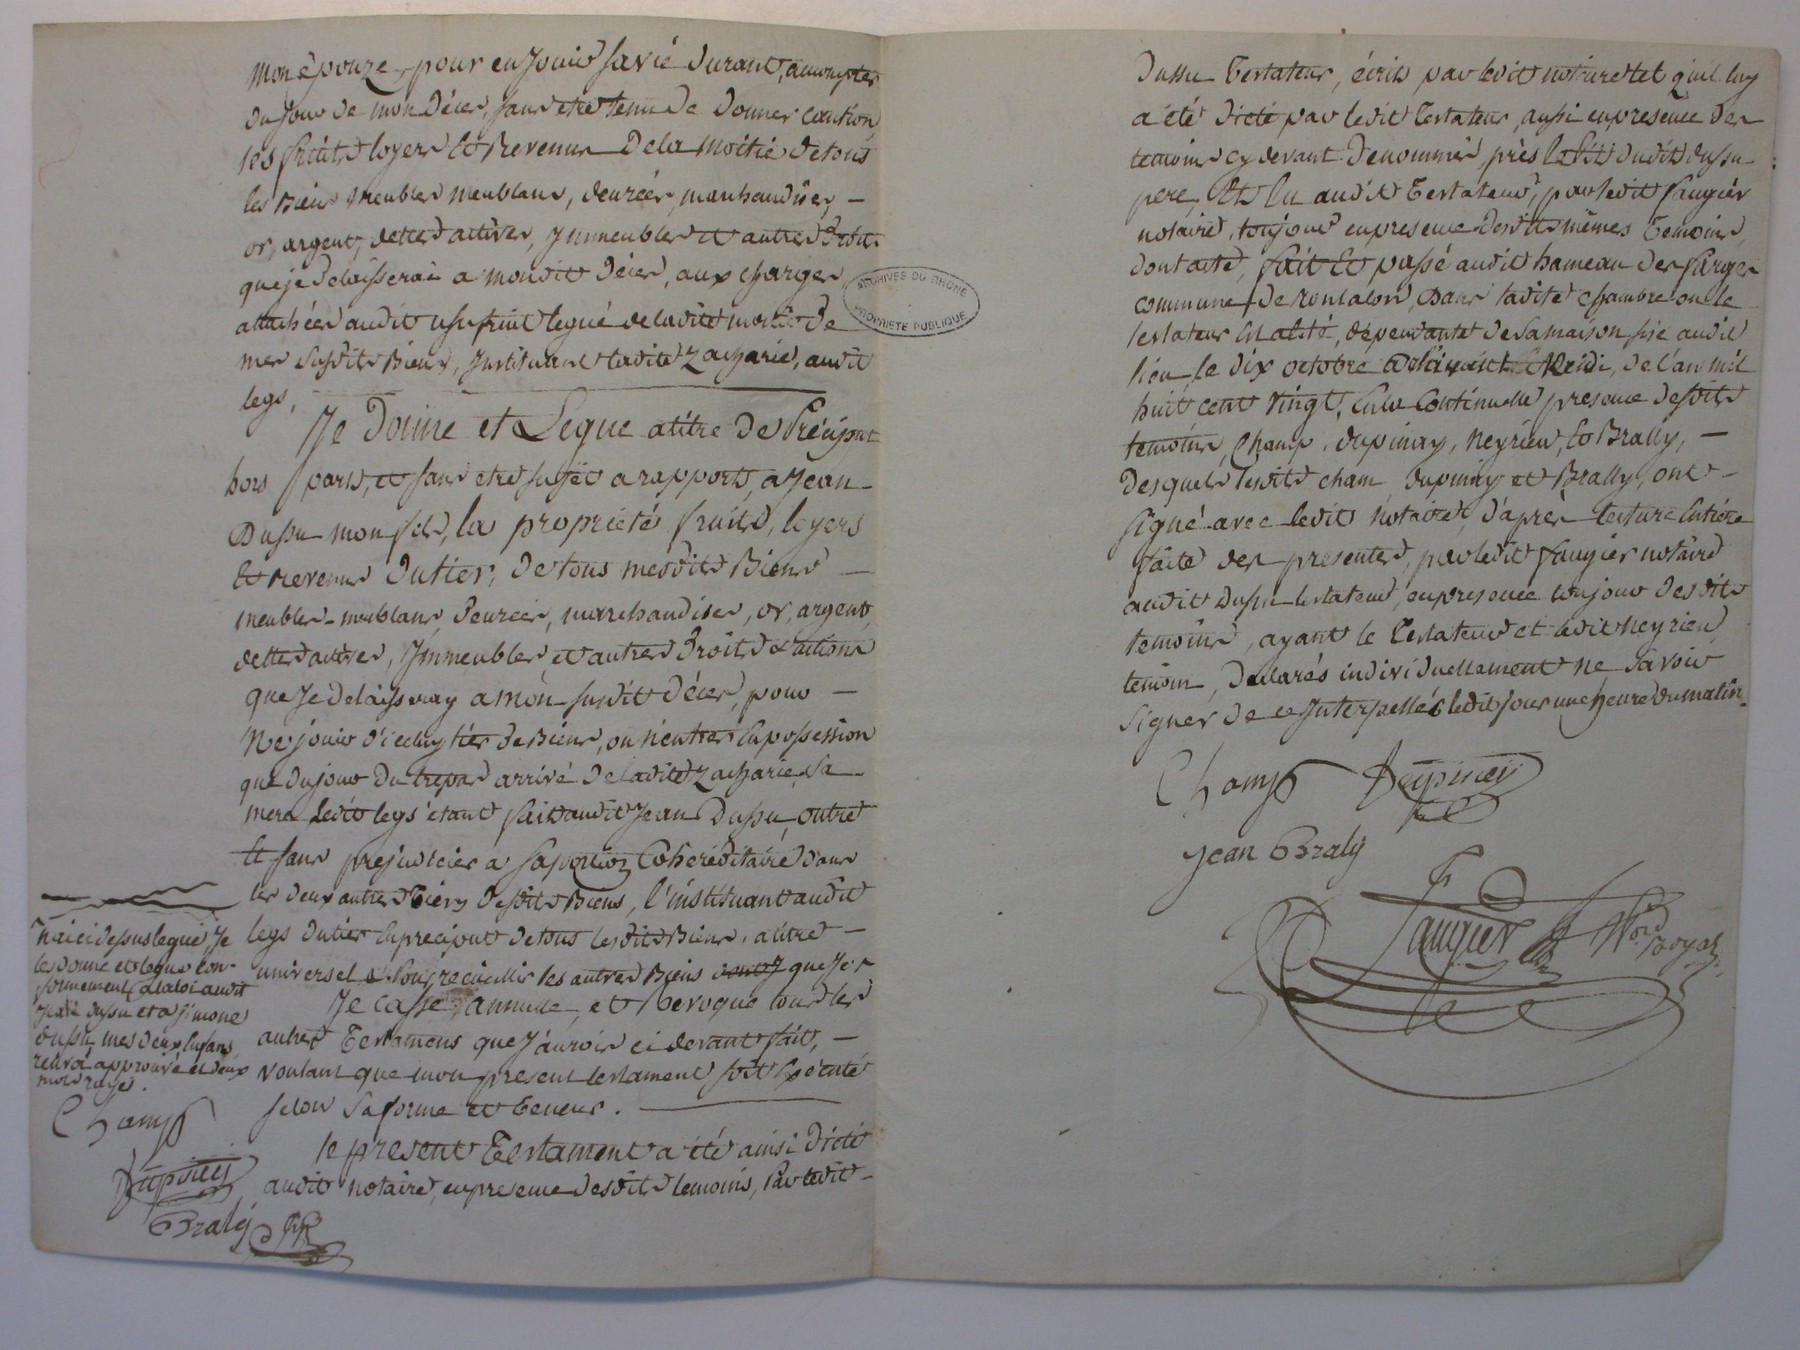 mon épouze, pour en Jouir sa vie durant, acompter
du jour de mon décer, sans etre tenu de donner caution
les fruits loyers et Revenus de la moitié de tous
les Biens meubles meublans, denrées, marchandises, —
or, argent, dettes actives, Immeubles et autres droits
que je delaisserai a mondit décer, aux charges
attachées audit usufruit legué de ladite moitié de
mes susdits Biens, Instituant ladite Zacharie, audit
legs,
Je Donne et Legue a titre de Préciput
hors parts, et sans etre sujet a rapports, a Jean
Dussu mon fils, la proprieté fruits, loyers
et revenus du tier, de tous mesdits Biens —
meubles-meublans denrées, marchandises, or, argent,
dettes actives, Immeubles et autres droits & actions
que Je delaisseray a mon susdit décer, pour —
Ne jouir d'icelluy tier de Biens, ou n'entrer en possession
que du jour du trepas arrivé de ladite Zacharie, sa
mere ledit legs étant fait audit Jean Dussu, outre
et sans prejudicier a sa portion Cohereditaire dans
les deux autres tiers desdits Biens, l'instituant audit
legs du tier en preciput de tous lesdits Biens, a titre —
universel & pour recueillir les autres Biens que Je n
n'ai ci dessus legué, Je
les donne et legue con-
formement a la loi audit
Jean dussu et a simone
dussu, mes deux enfans,
renvoi approuvé et deux
mots rayés.
Champ
Dupinay
Braly
Je casse, annulle, et Revoque tous les
autres Testamens que J'aurois ci devant fait, —
voulant que mon present testament soit Executé
selon sa forme et teneur.
le present Testament a été ainsi dicté
audit notaire, en presence desdits temoins, Par ledit —
Dussu Testateur, écrit par ledit notaire tel qu'il luy
a été dicté par ledit Testateur, aussi en presence des
temoins cy devant denommés près le lit dudit dussu
pere, Et lu audit Testateur, par ledit faugier
notaire, toujour en presence desdits mêmes temoins,
dont acte, fait et passé audit hameau des farges
commune de Rontalon, dans ladite chambre ou le
testateur Est alité, dépendante de sa maison sise audit
lieu, le dix octobre avant Midi, de l'an mil
huit cent vingt, En la Continuelle presence desdits
temoins, Champ, dupinay, Neyrieu, Et Brally, —
desquels lesdits cham, dupinay et Brally, ont —
signé avec ledit notaire, d'après lecture Entiere
faite des presentes, par ledit faugier notaire
audit Dussu testateur, en presence toujour desdits
temoins, ayant le Testateur et ledit Neyrieu
temoin, declarés individuellement ne savoir
signer de ce Interpellés ledit jour une heure du matin.
Champ Dupinay
Jean Braly
Faugier
Nord Royal
ARCHIVES DU RHONE
PROPRIETE PUBLIQUE